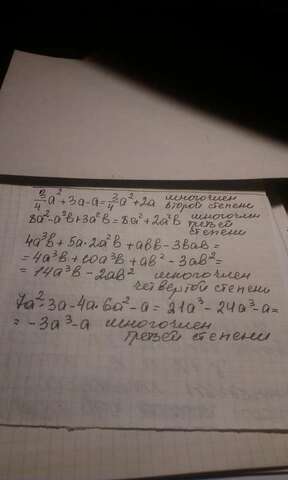 3/4 a²+3a-a=3/4 a²+2a многочлен
второй степени
8a²-a²b+3a²b=8a²+2a²b многочлен
третьей
степени
4a³b+5a·2a²b+abb-3bab=
=4a³b+10a³b+ab²-3ab²=
=14a³b-2ab² многочлен
четвертой степени
7a²3a-4a·6a²-a=21a³-24a³-a=
=-3a³-a многочлен
третьей степени